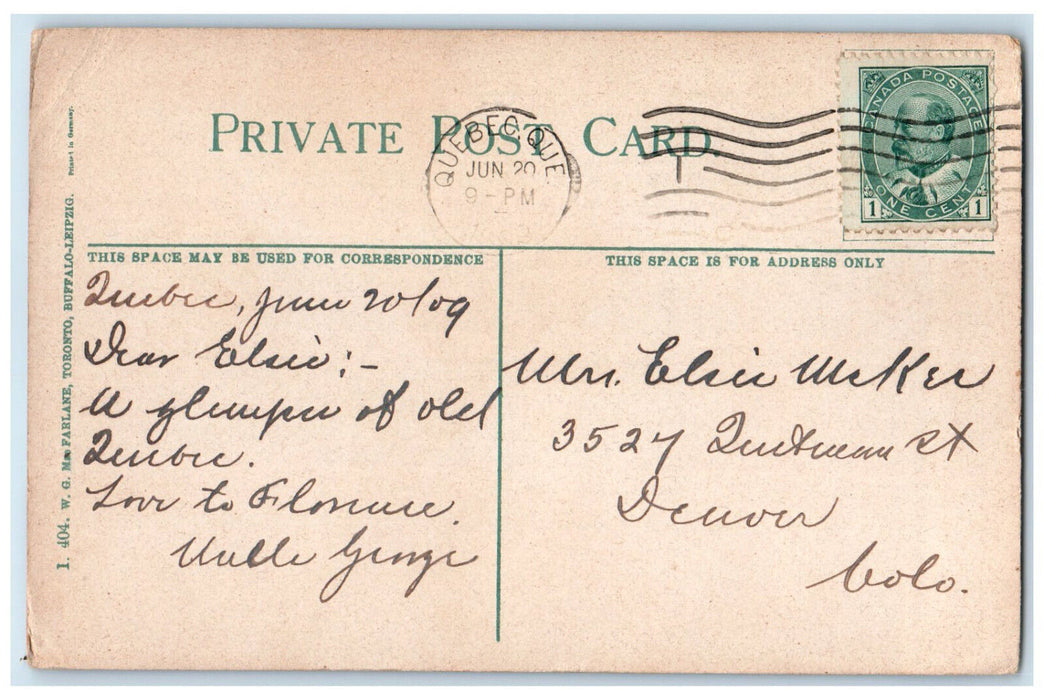 PRIVATE POST CARD.
QUEBEC, QUE
JUN 20
9-PM
CANADA POSTAGE
ONE CENT
1 1
THIS SPACE MAY BE USED FOR CORRESPONDENCE
THIS SPACE IS FOR ADDRESS ONLY
Quebec, June 20/09
Dear Elsie:-
A glimpse of old
Quebec.
Love to Florence.
Uncle George
Mrs. Elsie McKee
3527 St
Denver
Colo.
I. 404. W. G. MacFARLANE, TORONTO, BUFFALO-LEIPZIG.
Printed in Germany.